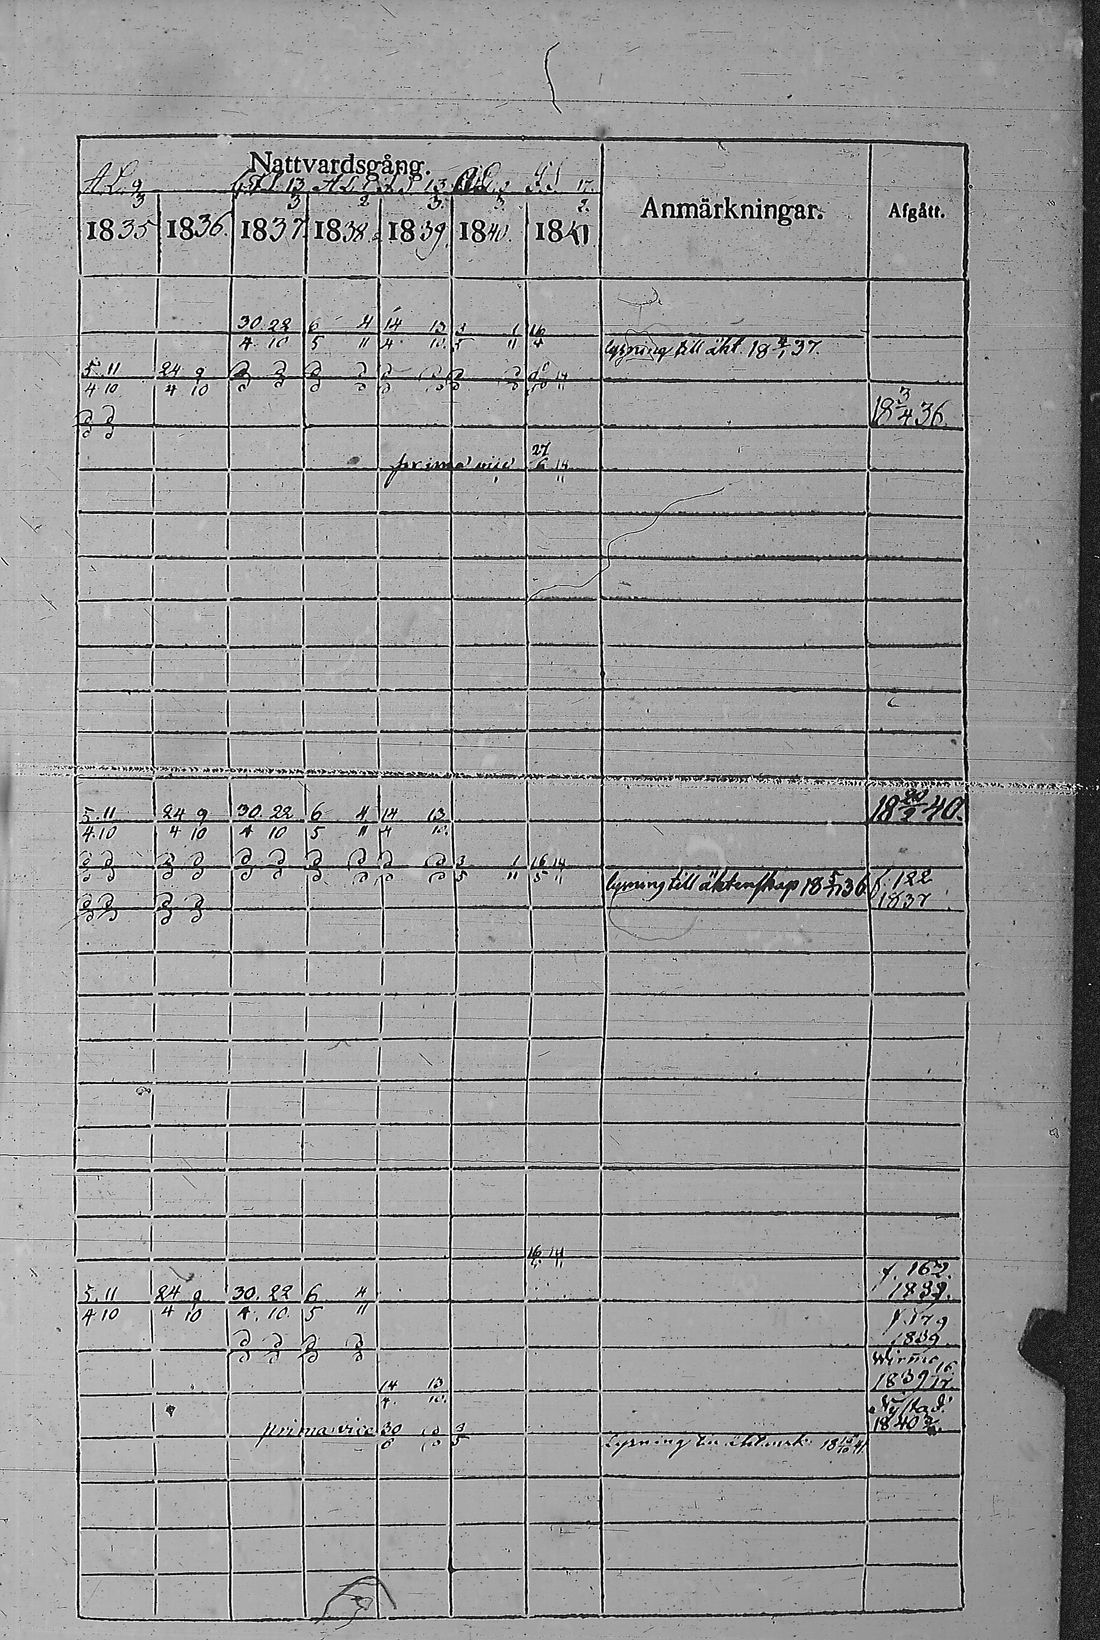 Nattvardsgång.
Anmärkningar.
Afgått.
1835 1836. 1837 1838 1839 1840. 1841
30 22 6 4 14 13 3 1 16
4 10 5 11 4 10 5 11 4
lysning till äkt. 18 4/1 37.
5 11 24 9
4 10 4 10
18 3/4 36.
prima vice 27 14
6 11
5 11 24 9 30 22 6 4 14 13
4 10 4 10 4 10 5 11 4 10
18 20/2 40.
3 1 16 14
5 11 5 11
lysning till äktenskap 18 5/11 36
f. 122
1837
16 14
f. 162.
1839.
5 11 24 9 30. 22 6 4
4 10 4 10 4. 10. 5 11
f. 179
1839
Wirmo
1839 16/11.
14 13
4. 10.
Nystad.
1840
prima vice 30 3
6 5
Lysning